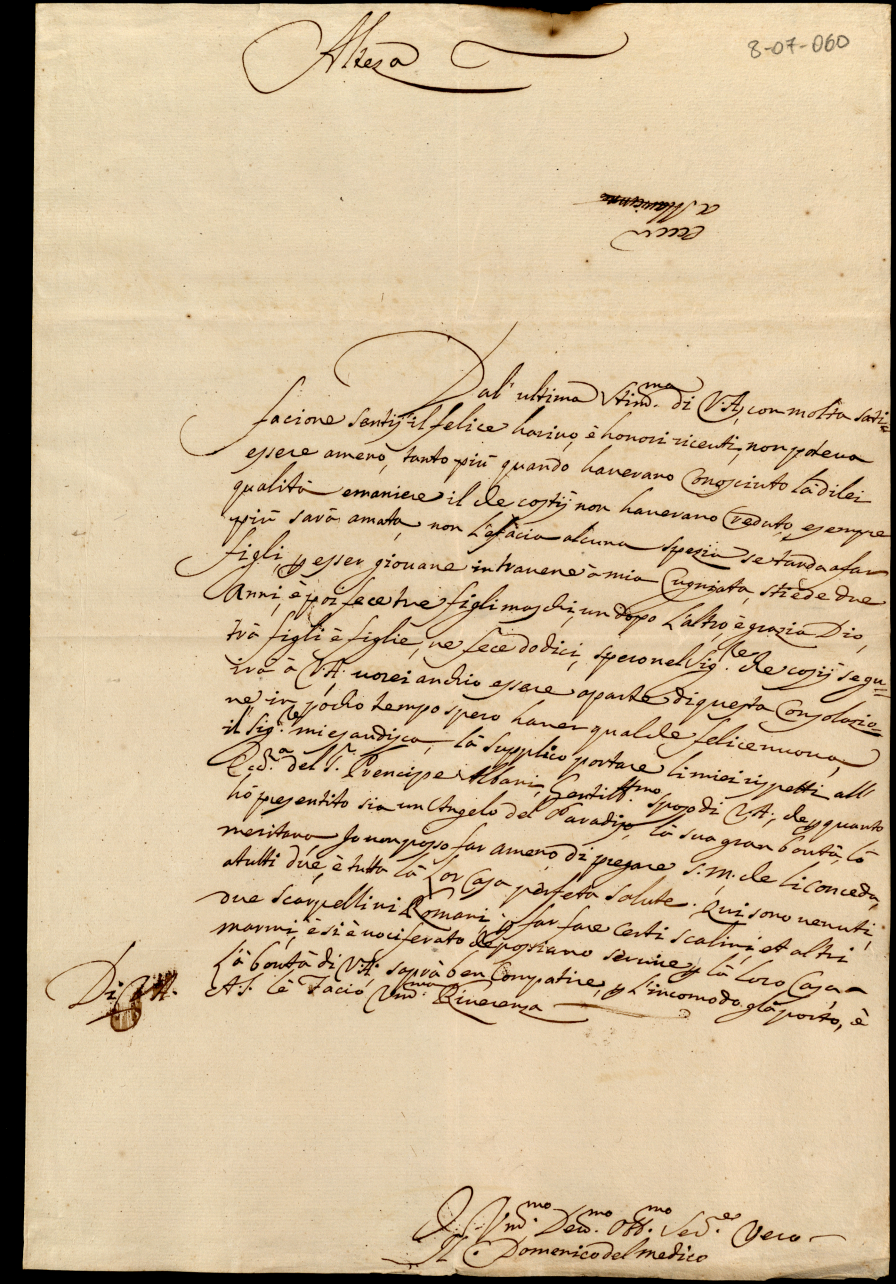 8-07-060
Altesa
Dal' ultima Stimd.ma di V.A, con molta sati=
facione sentij il felice harivo, è honori riceuti, non poteva
essere ameno, tanto più quando haverano Conosciuto la di lei
qualità emaniere il che costij non haverano veduto, e sempre
più sarà amata, non Le facia alcuna spezia se tarda a far
figli, p esser giovane intravene à mia Cugniata, stiede due
Anni, è poi fece tre figli maschi, un dopo L'altro, è grazia Dio,
trà figli è figlie, ne fece dodici, spero nel Sig.re che cosij segu=
irà à V.A. vorei anchio essere aparte di questa Consolazio=
ne in pocho tempo spero haver qualche felice nuova,
il Sig.re mi esaudisca, là supplico portare li miei rispetti all'
Ecc.a del S.r Prencipe Albani Gentill.mo sposo di V.A; che p quanto
hò presentito sia un Angelo del Paradiso, là sua gran bontà, lò
meritava Jo non posso far ameno di pregare S.M. che li conceda,
atutti due, è tutta là Lor Casa perfeta salute. Qui sono venuti,
due scarpellini Romani, p far fare certi scalini, et altri
marmi, è si è vociferato che posiano servire p là loro Casa,
Là bontà di V.A. saprà ben Compatire, p l'incomodo glà porto, è
A.S. lè Facio Vmd.ma Riverenza
Di V.A.
Vmd.mo Dev.mo Obb.mo Ser.e Vero
Domenico del Medico